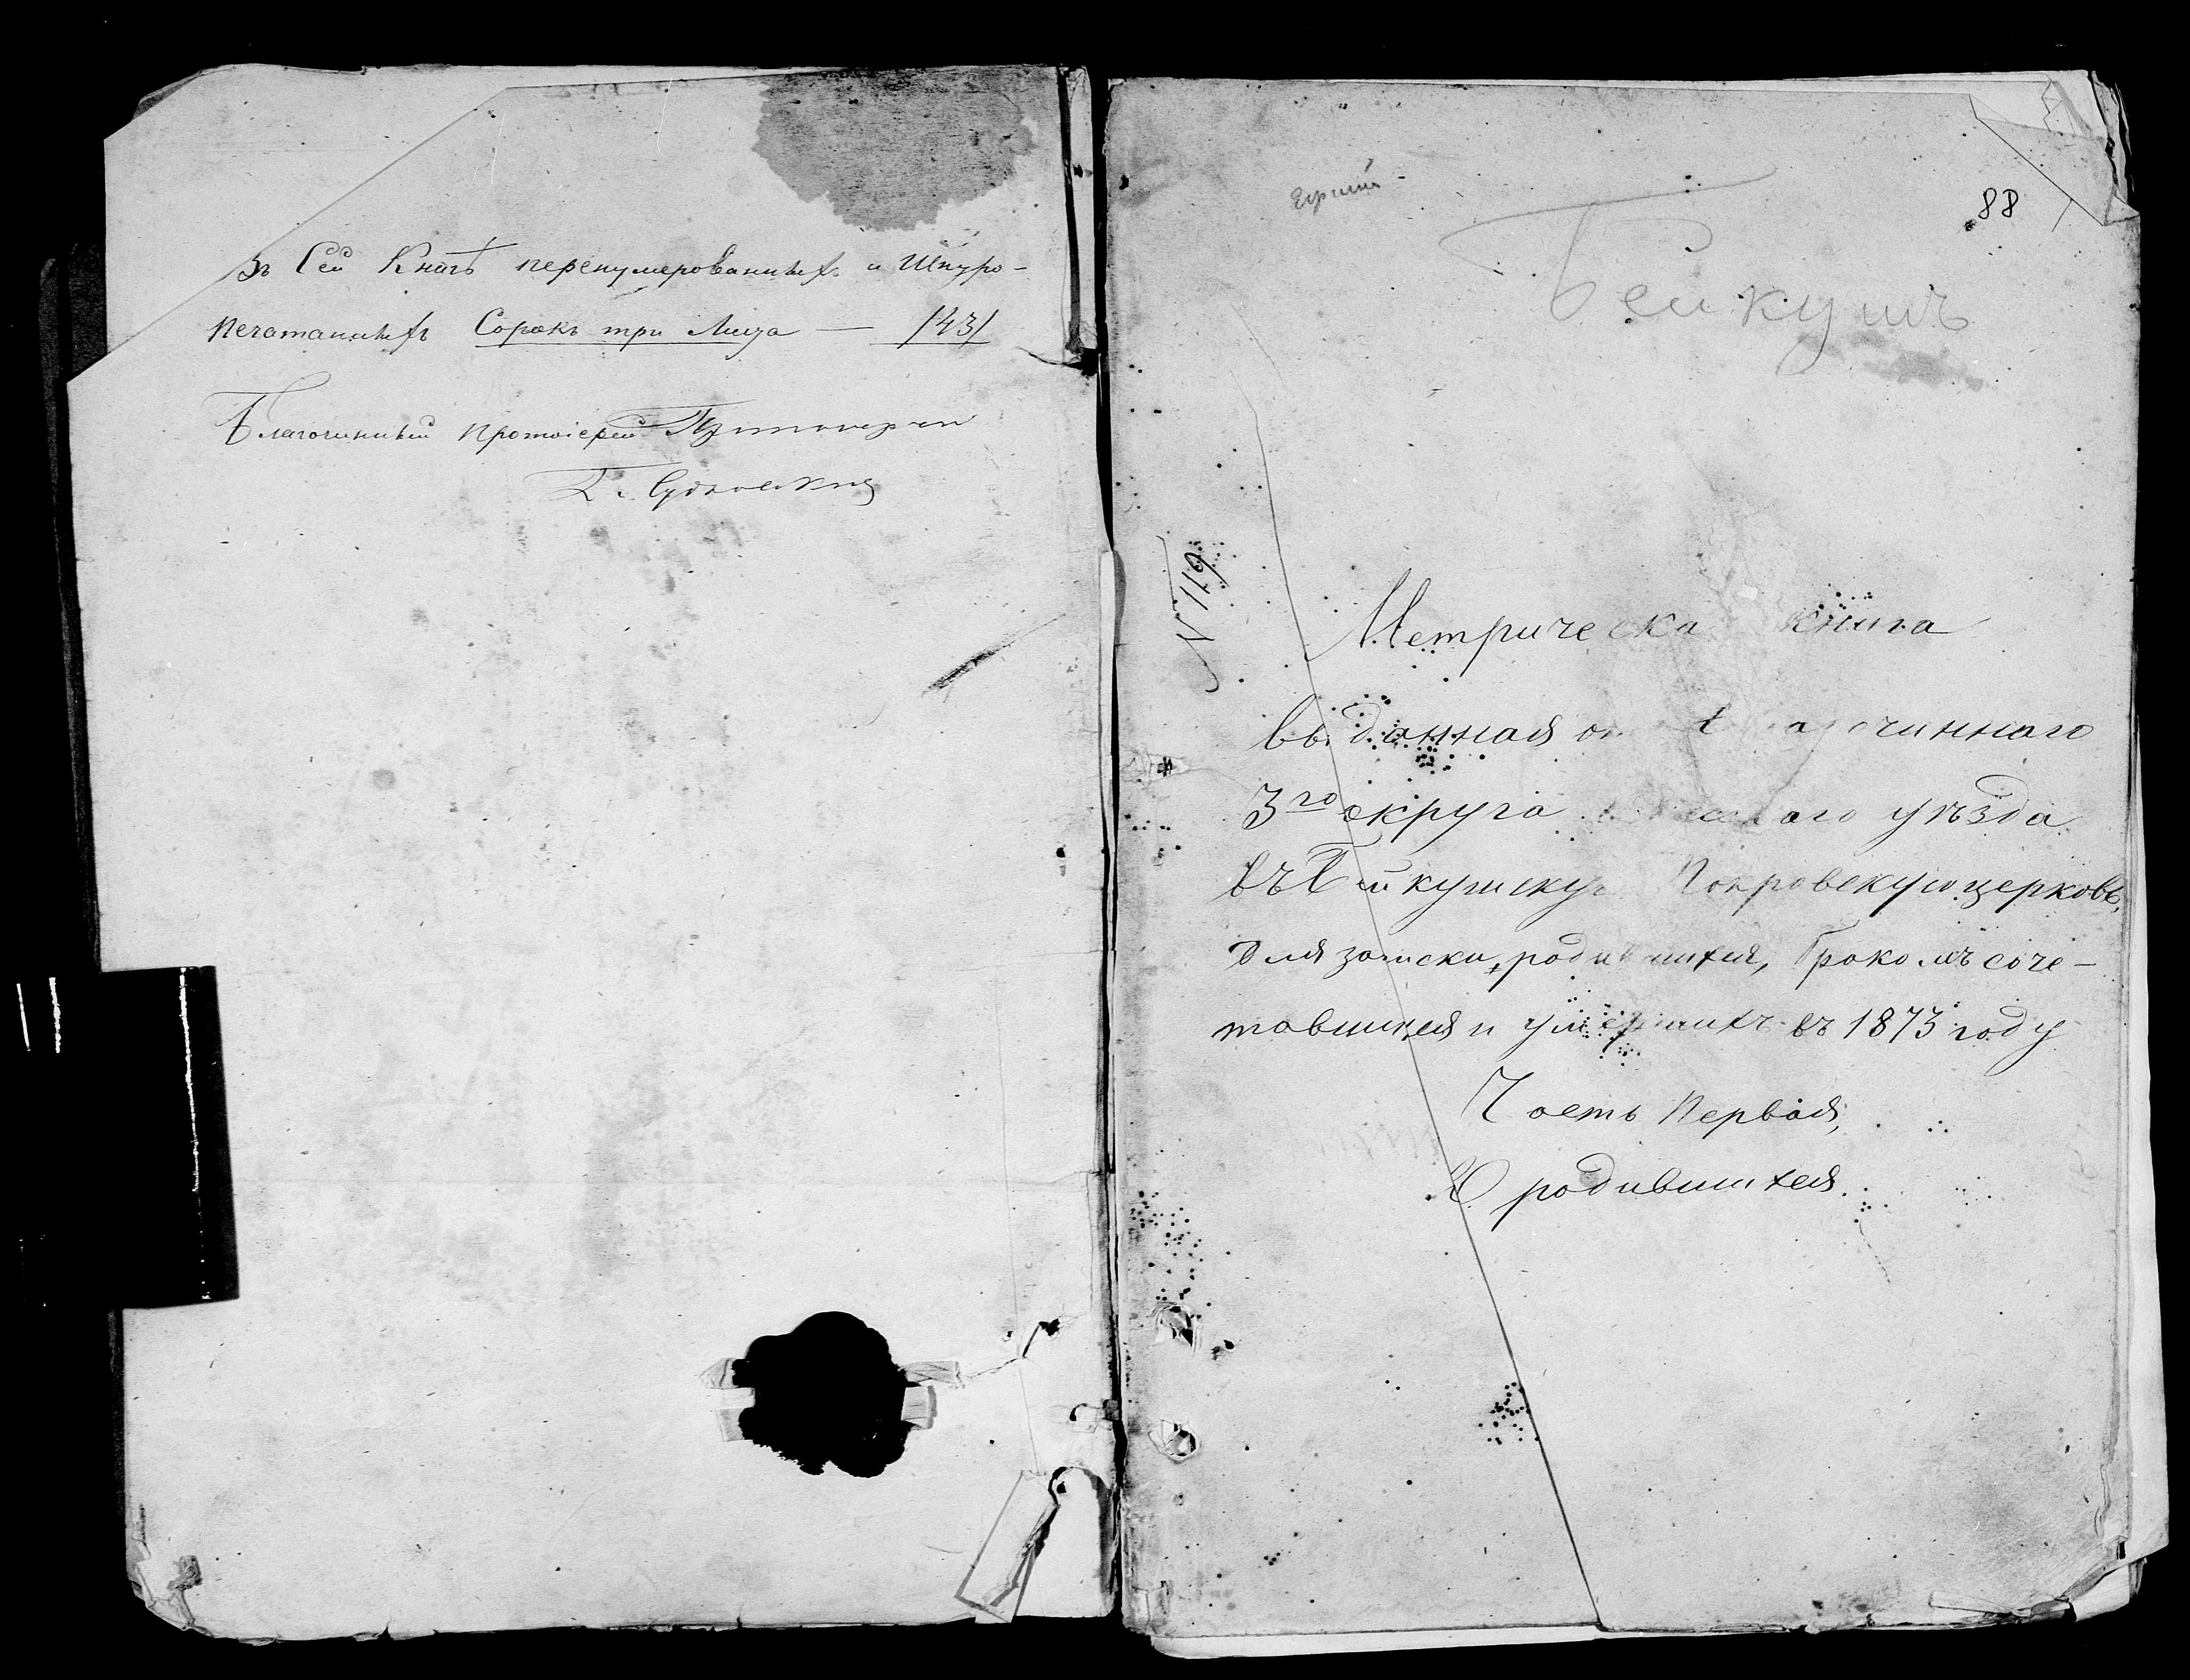 Въ Сей Книгѣ перенумерованныхъ и Шнуро-
печатанныхъ Сорокъ три Листа — /43/
Благочинный протоіерей
88
Бейкушъ
N 119
Метрическа книга
выданная о благочиннаго
3го округа аго уѣзда
въ Бейкушскую Покровскую церковь,
для записки, родившихся, бракомъ соче-
тавшихся и умершихъ въ 1873 году
Часть Первая,
О родившихся.